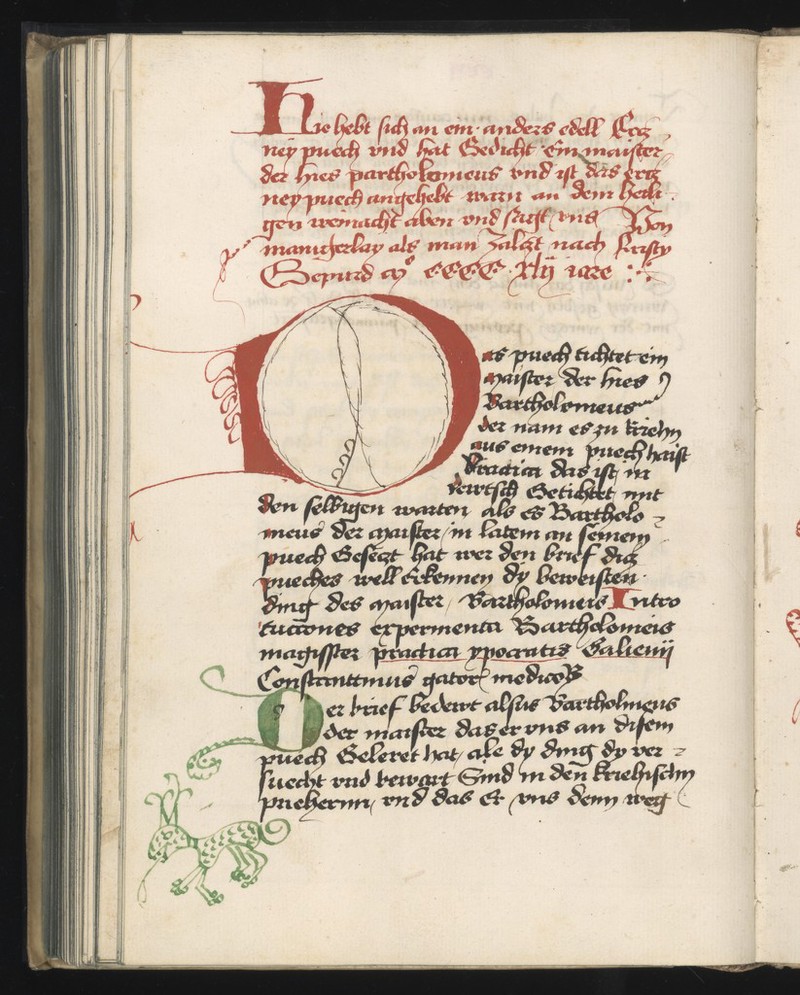 Hie hebt sich an ein anders edell Ercz
ney puech vnd hat Gedicht Ein maister
der hies partholomeus vnd ist das ercz
ney puech angehebt warn an dem heili
gen weinacht aben vnd sagt vns Von
manigerlay als man zalczt nach kristy
Gepurd m° cccc xlij iare
Das puech tichtet ein
maister der hies
Bartholomeus
der nam es zu kriehn
aus einem puech haist
Practica das ist in
tewtsch Getichtet mit
den selbigen warten als es Bartholo
meus der maister in latein an seinem
puech Geseczt hat wer den brief dicz
pueches well Erkennen dy beweisten
ding des maister Bartholomeis Intro
tucciones experimenta Bartholomeis
magisster practica ypocratis Galienij
Constantinus medicos
Der brief bedewt alsus Bartholmeus
der maister das er vns an disem
puech Geleret hat ale dy ding dy ver
suecht vnd bewart Sind in den kriehischn
puehernn vnd das Er vns denn weg